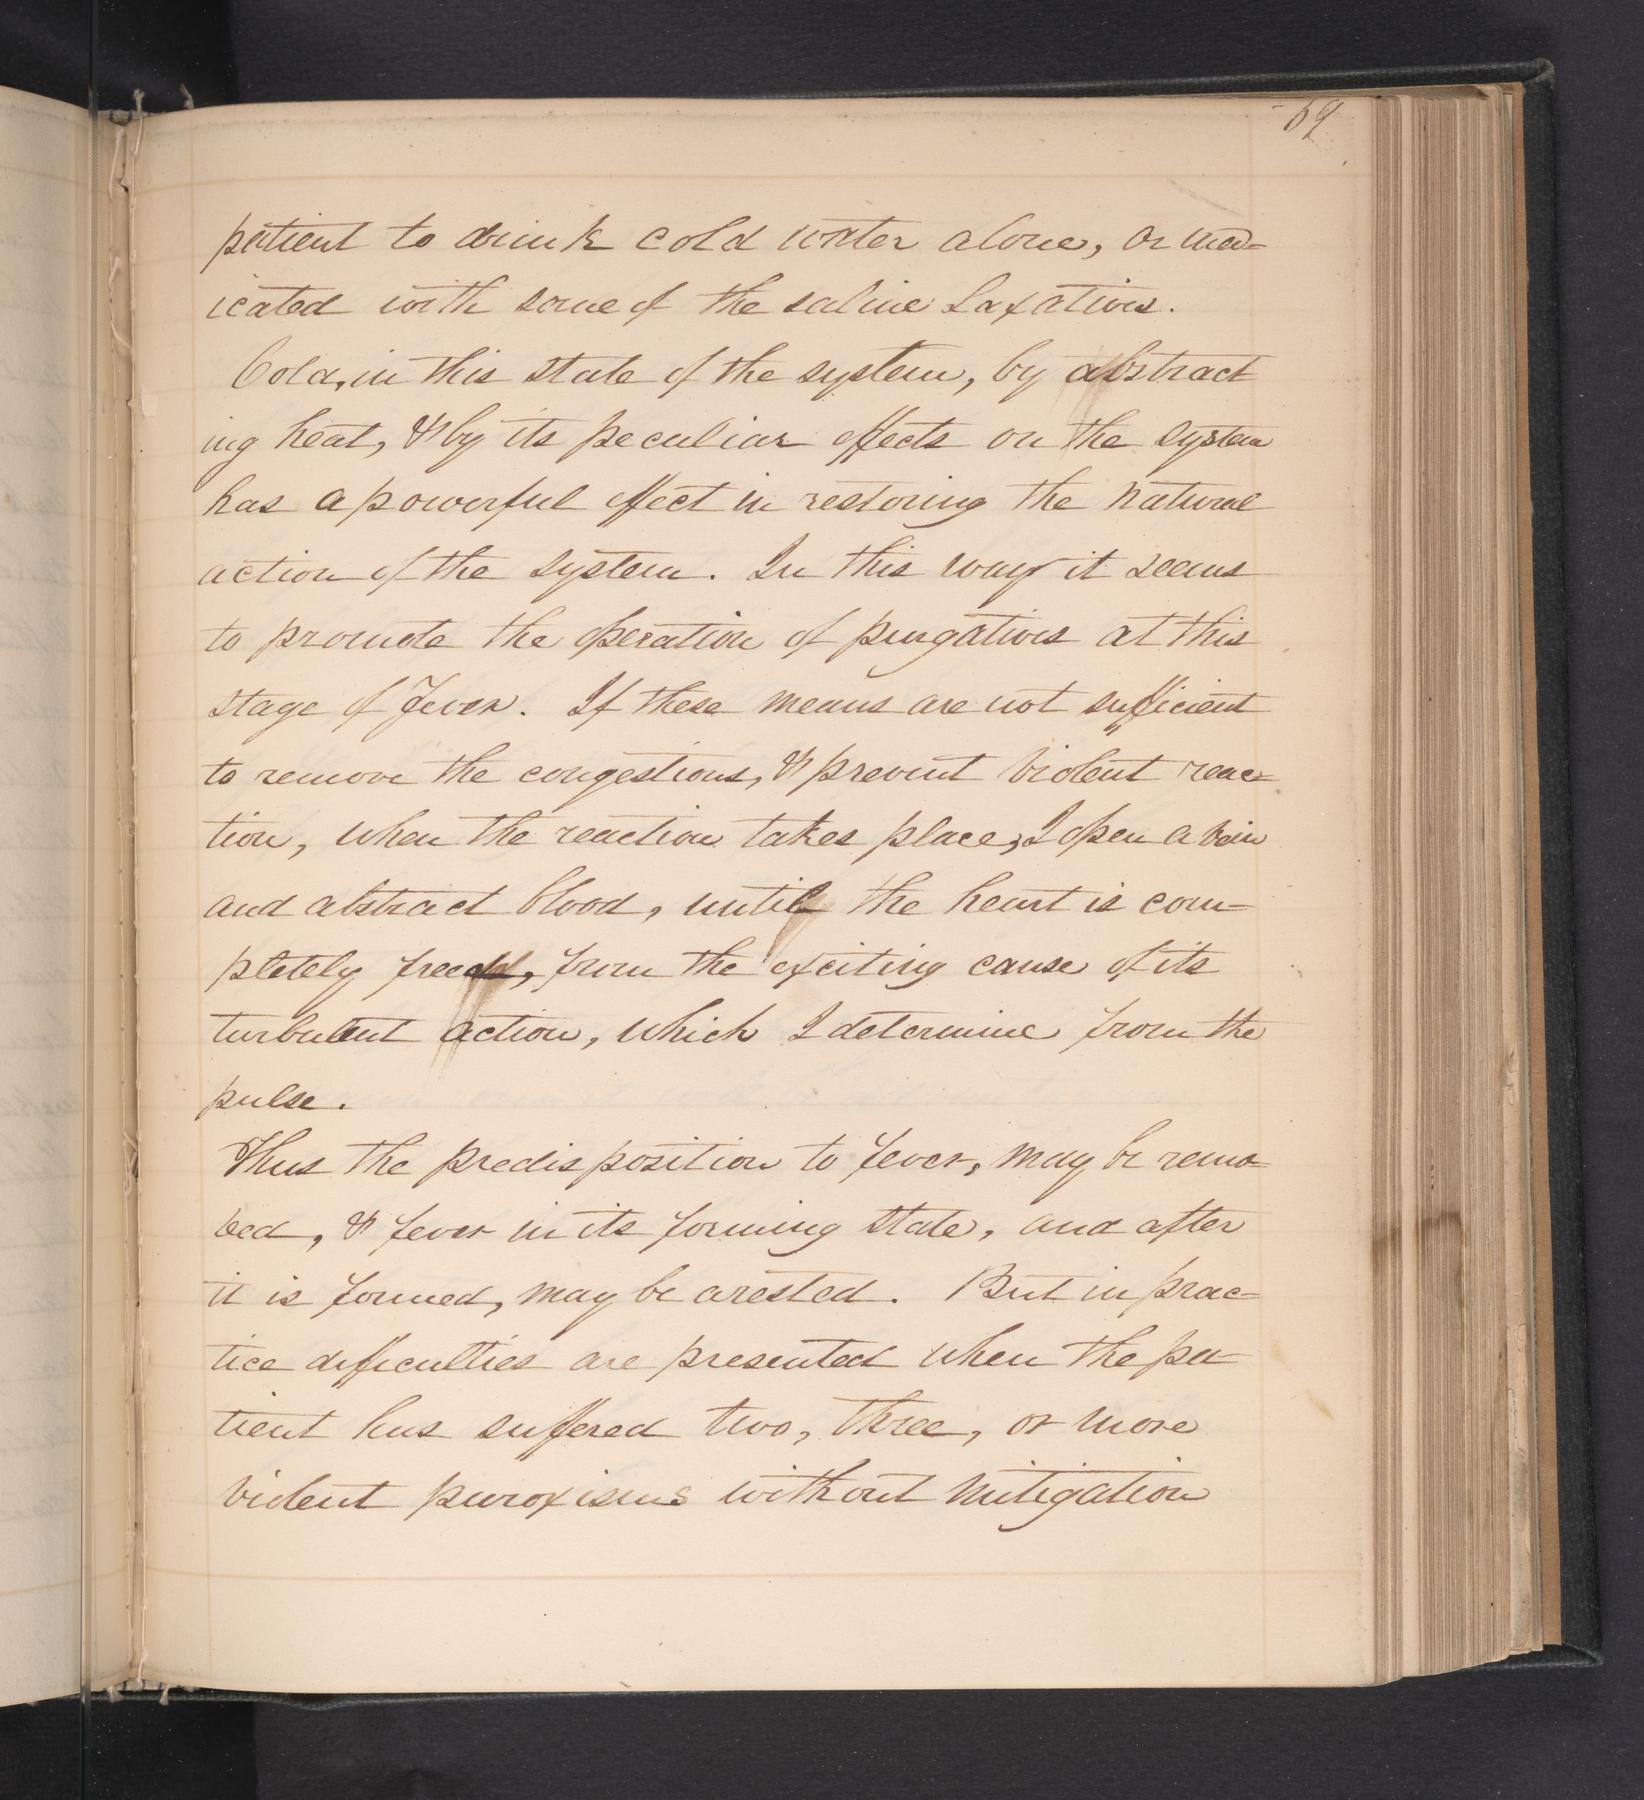 69
patient to drink cold water alone, or med-
icated with some of the saline Laxatives.
Cold, in this state of the system, by abstract
ing heat, & by its peculiar effects on the system
has a powerful effect in restoring the natural
action of the system. In this way it seems
to promote the operation of purgatives at this
stage of Fever. If these means are not sufficient
to remove the congestions, & prevent violent reac-
tion, when the reaction takes place, I open a vein
and abstract blood, until the heart is com-
pletely freed, from the exciting cause of its
turbulent action, which I determine from the
pulse.
Thus the predisposition to fever, may be remo-
ved, & fever in its forming state, and after
it is formed, may be arested. But in prac-
tice difficulties are presented when the pa-
tient has suffered two, three, or more
violent paroxisms without mitigation